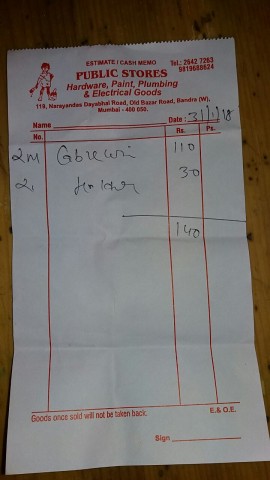 ESTIMATE / CASH MEMO
Tel.: 2642 7263
9819688624
PUBLIC STORES
Hardware, Paint, Plumbing
& Electrical Goods
119, Narayandas Dayabhai Road, Old Bazar Road, Bandra (W),
Mumbai - 400 050.
Name Date : 31/1/18
No. Rs. Ps.
2m 110
2 Holder 30
140
Goods once sold will not be taken back. E.& O.E.
Sign